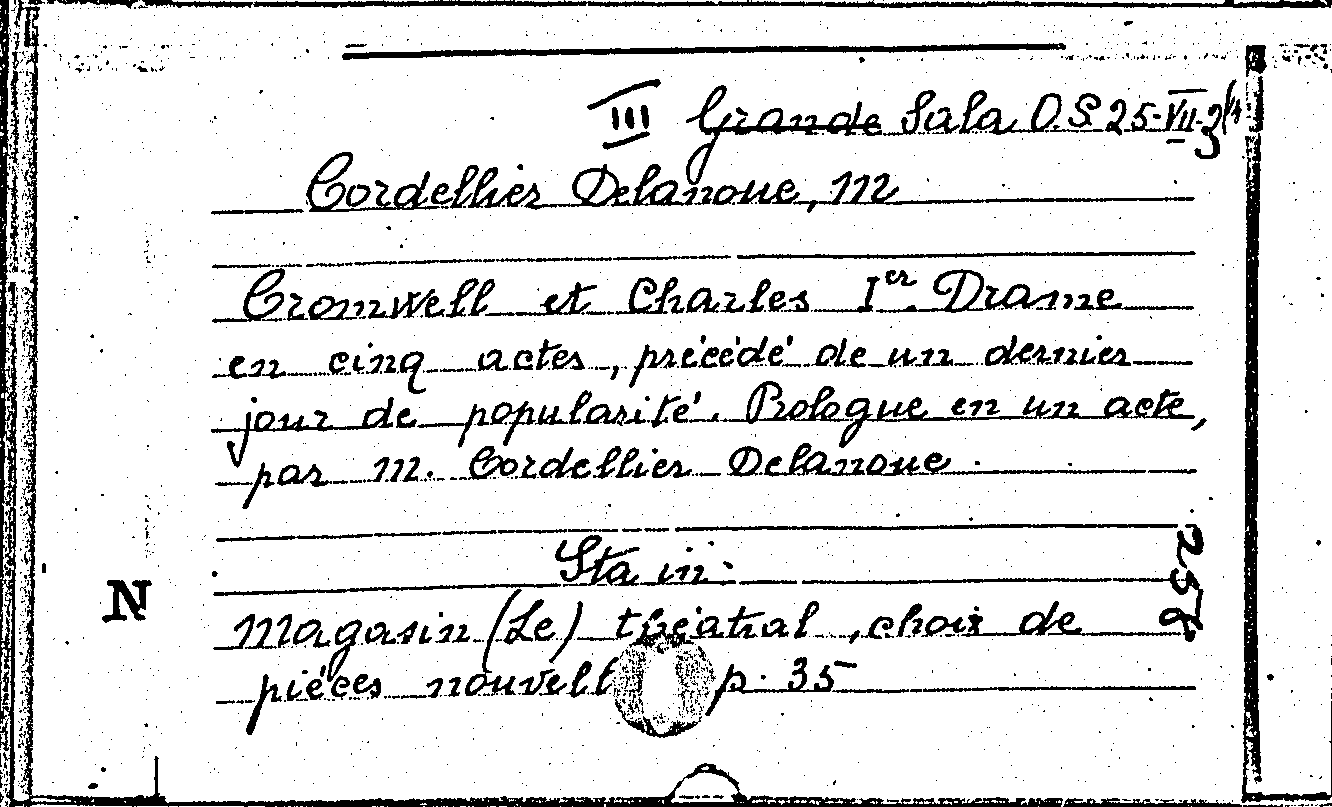 III Grande Sala O.S 25-VII-3
Cordellier Delanoue, M
Cromwell et Charles Ier. Drame
en cinq actes, précédé de un dernier
jour de popularité. Prologue en un acte,
par M. Cordellier Delanoue.
Sta in:
Magasin (Le) théatral, choix de
pièces nouvell p. 35
N
258